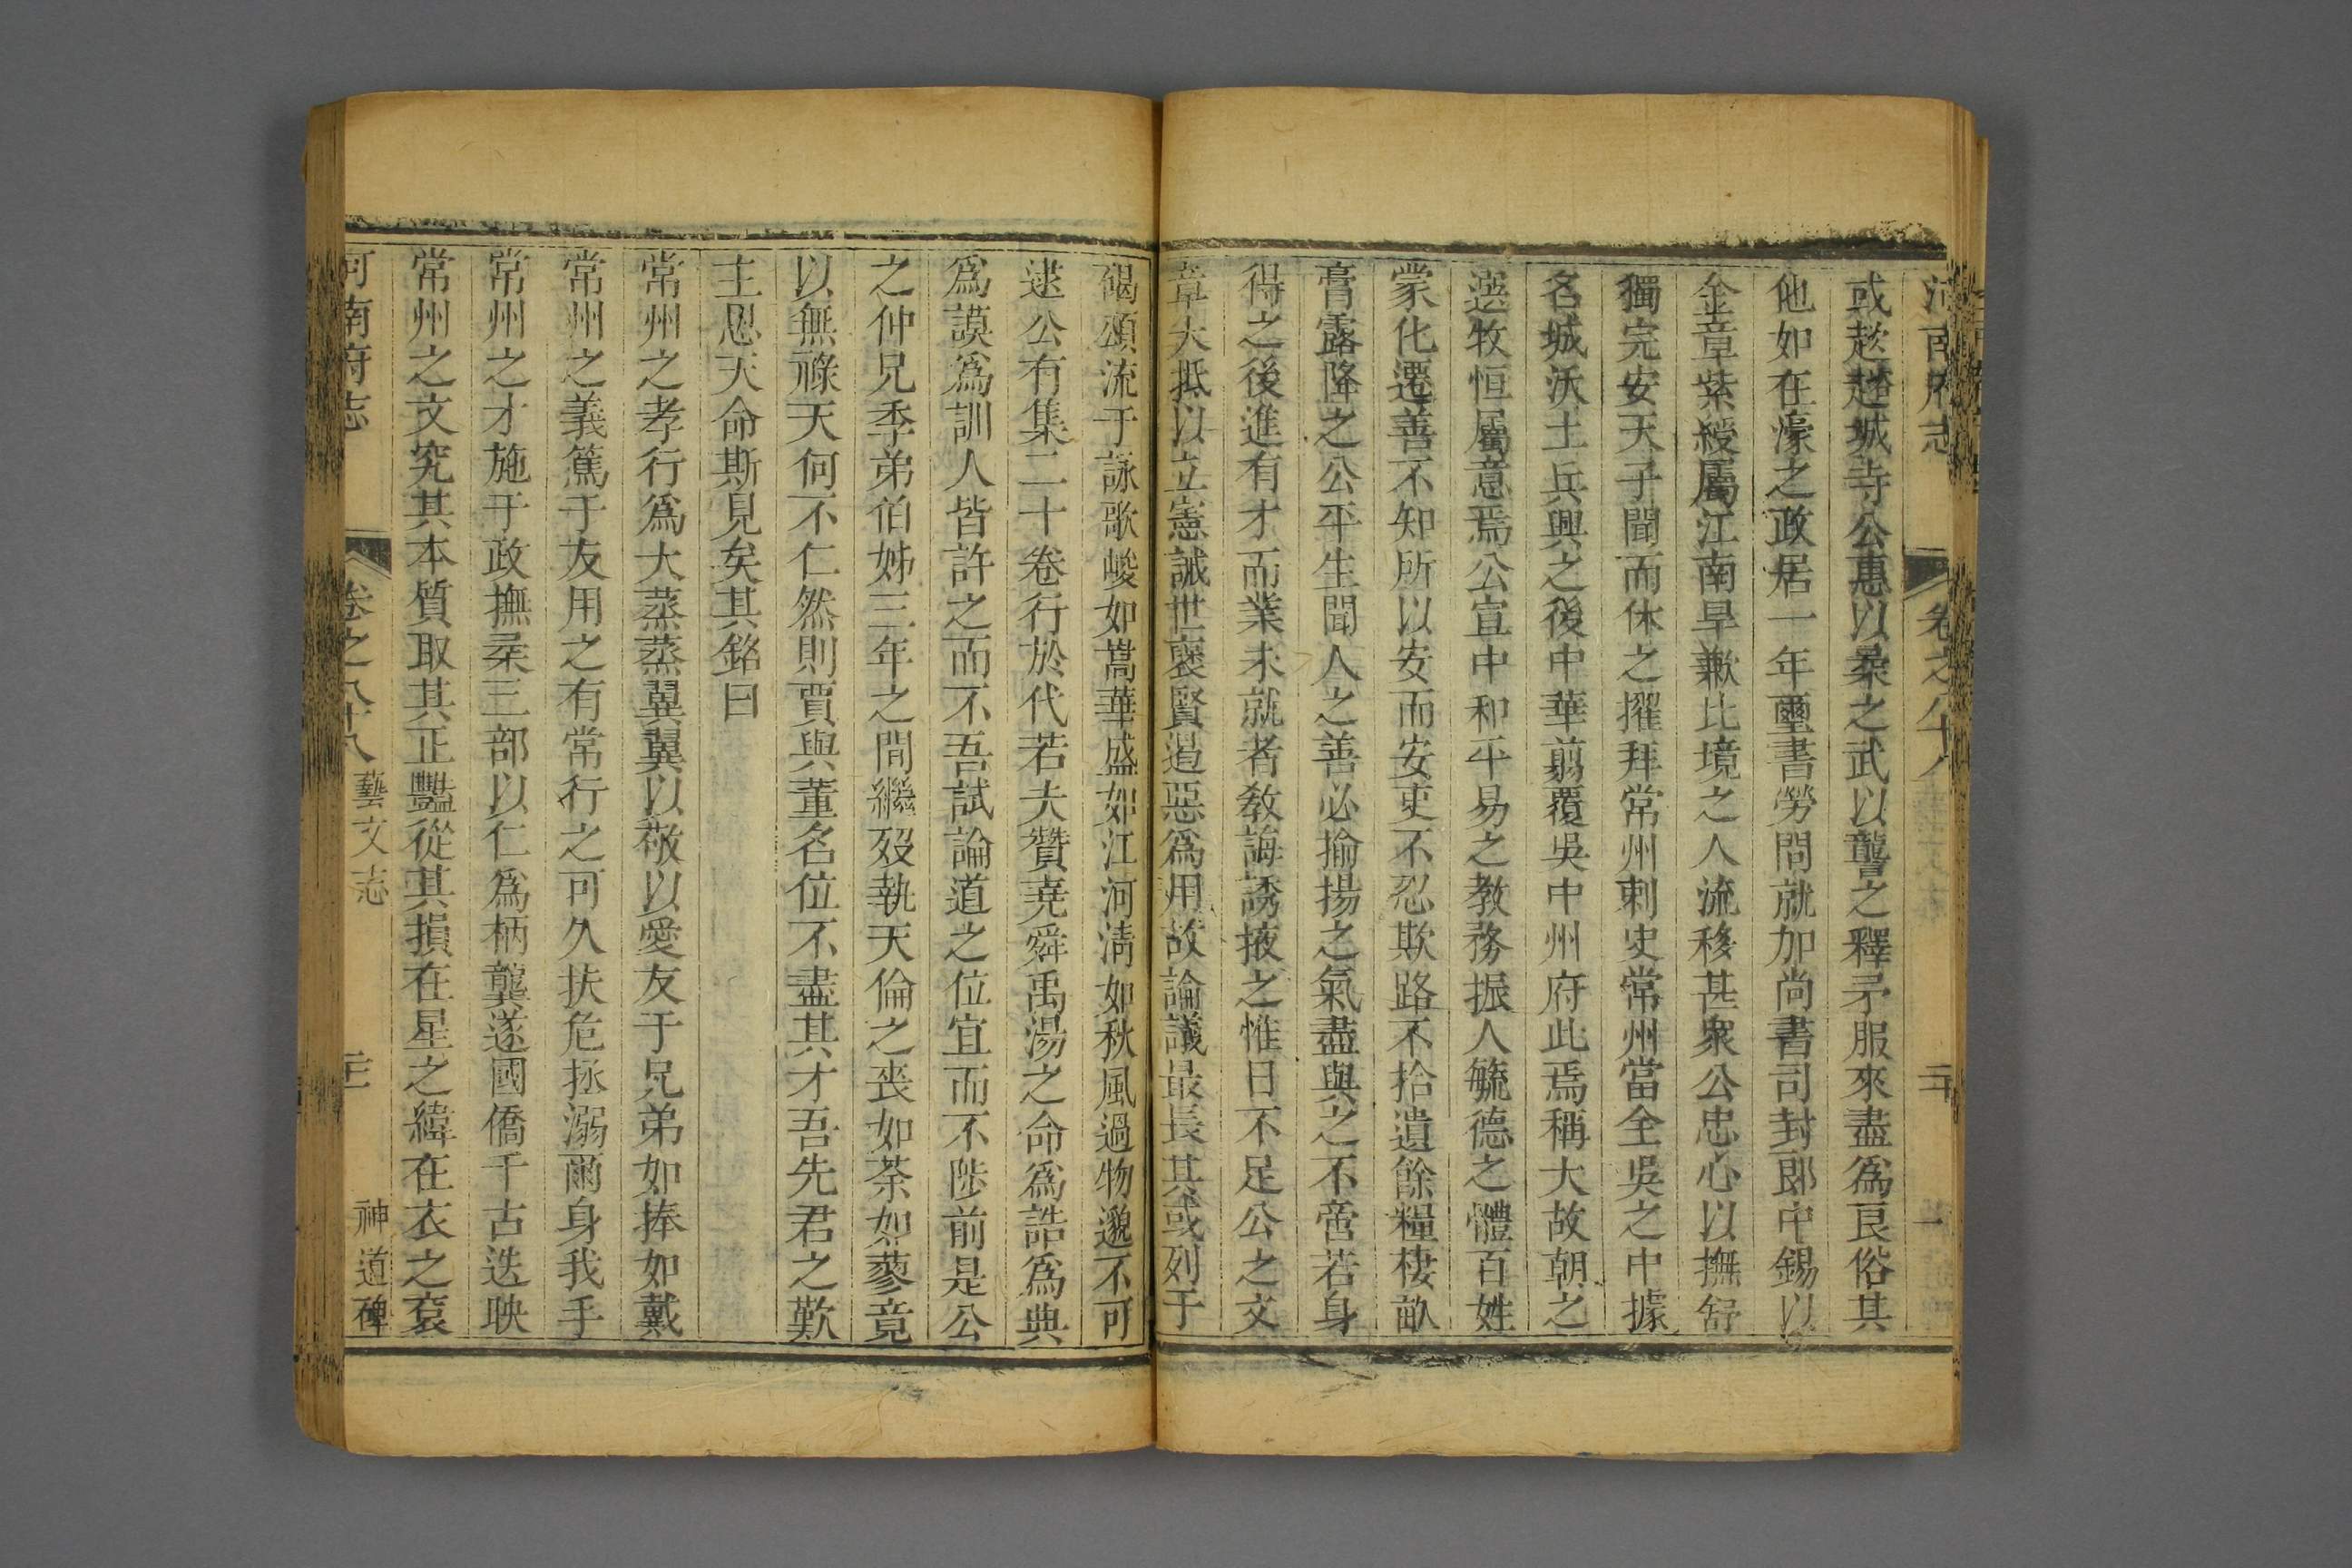 河南府志 卷之八十八 二十
或趑趄城寺公惠以柔之武以讋之釋矛服來盡爲良俗其
他如在濠之政居一年璽書勞問就加尚書司封郎中錫以
金章紫綬屬江南旱歉比境之人流移甚衆公忠心以撫舒
獨完安天子聞而休之擢拜常州刺史常州當全吳之中據
名城沃土兵興之後中華翦覆吳中州府此焉稱大故朝之
選牧恒屬意焉公宣中和平易之教務振人毓德之體百姓
蒙化遷善不知所以安而安吏不忍欺路不拾遺餘糧棲畝
膏露降之公平生聞人之善必揄揚之氣盡與之不啻若身
得之後進有才而業未就者教誨誘掖之惟日不足公之文
章大抵以立憲誡世褒賢遏惡爲用故論議最長其或列于
碣頌流于詠歌峻如嵩華盛如江河淸如秋風過物邈不可
逮公有集二十卷行於代若夫贊堯舜禹湯之命爲誥爲典
爲謨爲訓人皆許之而不吾試論道之位宜而不陟前是公
之仲兄季弟伯姊三年之間繼歿執天倫之喪如荼如蓼竟
以無祿天何不仁然則賈與董名位不盡其才吾先君之歎
主恩天命斯見矣其銘曰
常州之孝行爲大蒸蒸翼翼以敬以愛友于兄弟如捧如戴
常州之義篤于友用之有常行之可久扶危拯溺爾身我手
常州之才施于政撫柔三部以仁爲柄龔遂國僑千古迭映
常州之文究其本質取其正豔從其損在星之緯在衣之袞
河南府志 卷之八十八 藝文志 二十一 神道碑